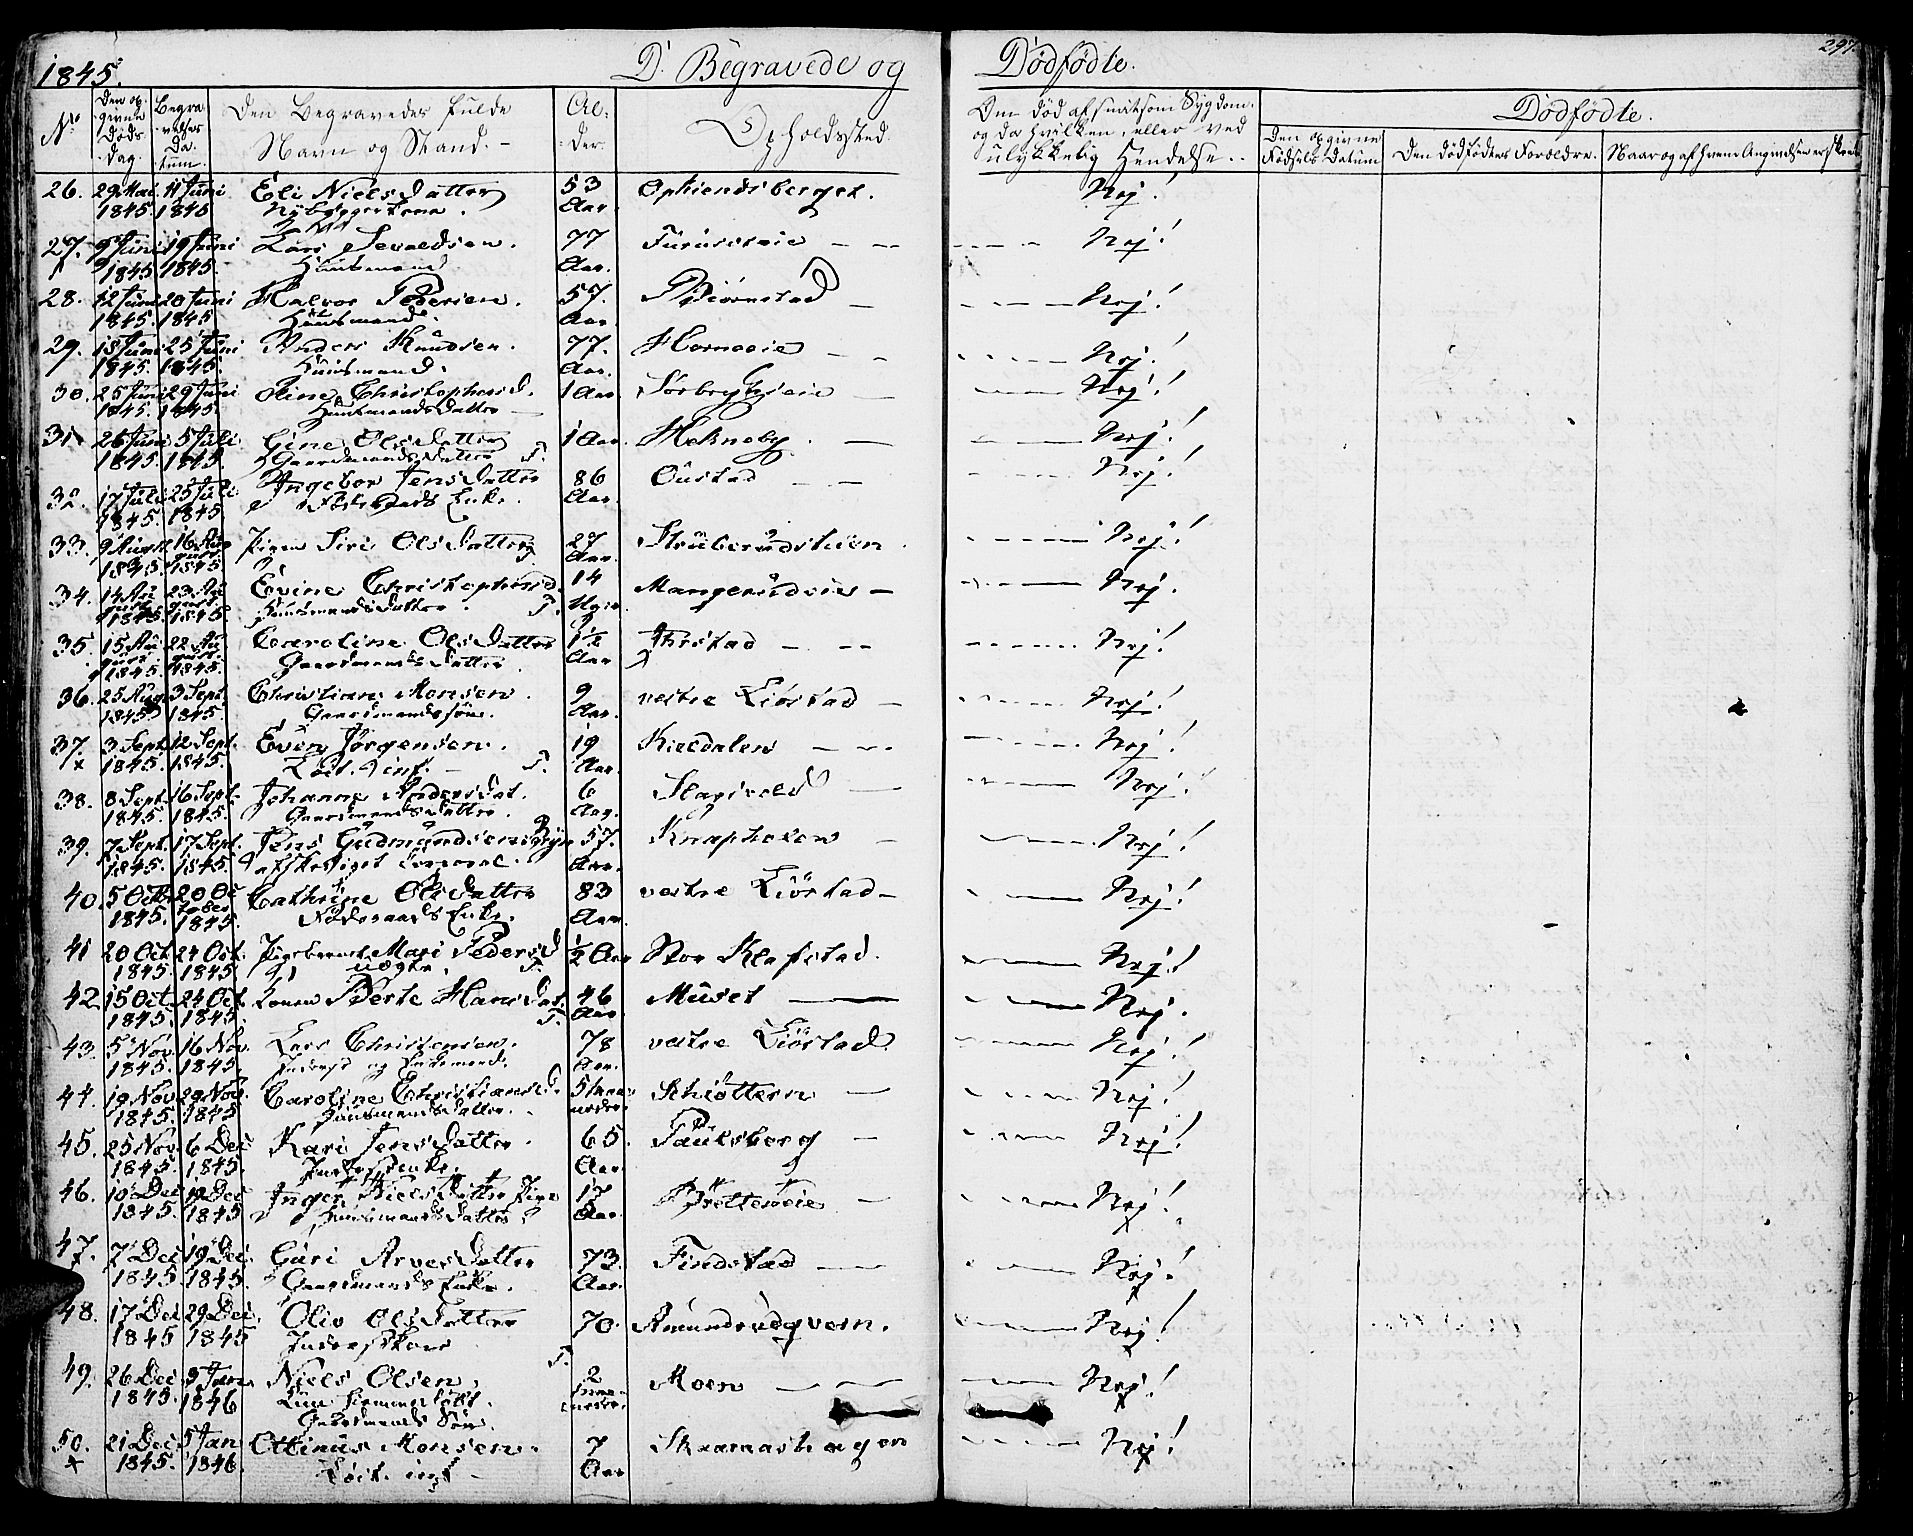 1845. D. Begravede og Dødfødte. 297.
No Den opgivne Døds Dag. Begravelses Datum. Den Begravedes fulde Navn og Stand. Alder. Opholdssted. Om død af smitsom Sygdom og da hvilken, eller ved ulykkelig Hendelse. Dødfødte.
Den opgivne Fødsels Datum Den dødfødtes Forældre. Naar og af hvem
26. 29 Mai 11 Juni Eli Niels Datter 53 Opkiendsberget. Nej!
1845. 1845 Nybyggerkone. Aar.
27. 9 Juni 19 Juni Lars Sevaldsen. 77 Nej!
1845 1845. Huusmand. Aar.
28. 12 Juni 20 Juni Halvor Pedersen. 57. Biørnstad Nej!
1845. 1845 Huusmand. Aar.
29. 18 Juni 25 Juni Anders Knudsen. 77. Horneeie Nej!
1845. 1845. Huusmand. Aar.
30. 25 Juni 29 Juni Oline Christophersd. 1 Aar. Nej!
1845. 1845. Huusmands Datter
31. 26 Juni 5 Juli Gine Ols Datter 1 Aar. Nej!
1845. 1845. Gaardmands Datter T.
32. 17 Juli 25 Juli Ingebor Jens Datter 86 Oustad Nej!
1845. 1845 Enke. Aar.
33. 9 August 16 Aug Pigen Siri Ols Datter 27 Nej!
1845. gust 1845 Aar.
34. 14 Au 23 Au Evine Christophersd. 14 Mangerudeie Nej.
gust 1845. gust 1845. Huusmands Datter. T. Uger
35. 15 Au 22 Au Caroline Ols Datter 1½ Nej!
gust 1845 gust 1845. Gaardmands Datter Aar
36. 25 Aug 3 Sept. Christian Monsen. 9 vestre Liørstad Nej!
1845 1845. Gaardmandssøn. Aar.
37. 3 Sept. 12 Sept. Even Jørgensen. 19 Kieldalen Nej!
x 1845. 1845. T. Aar.
38. 8 Sept. 16 Sept. Johanne Andersdat. 6 Slagsvold Nej!
1845. 1845. Gaardmands Datter. Aar.
39. 7 Sept. 17 Sept. Jens Gudmundsen 57. Nej!
1845. 1845. afskediget Corporal. Aar.
40. 5 Octb 20 Oc Cathrine Ols Datter 83 vestre Liørstad Nej!
1845. tober 1845. Enke. Aar.
41 20 Oct. 24 Oct. Pigebarnet Mari Pedersd ½ Aar Stor Klefstad. Nej!
1845. 1845 uægte. T.
42 15 Oct. 24 Oct. Konen Berte Hansdat. 46 Muset Nej.
1845. 1845. T. Aar
43. 5 Nov. 16 Nov. Lars Christensen. 78 vestre Liørstad Nej!
1845. 1845. Inderst og Enkemand. Aar.
44. 19 Nov. 29 Nov. Caroline Christiansd. 5 Maaneder Schiøttern Nej!
1845. 1845 Huusmands Datter.
45. 25 Nov. 6 Dec Kari Jens Datter. 65. Paulsberg Nej!
1845. 1845. Inderst Enke. Aar.
46. 10 Dec 19 Dec Inger Niels Datter Pige 17 Nej!
1845. 1845 Huusmands Datter. Aar.
47. 7 Dec 19 Dec Guri Arves Datter 73. Findstad Nej!
1845. 1845. Gaardmands Enke. Aar.
48. 17 Dec 29 Dec. Oliv Ols Datter 70. Amundrudqvern. Nej!
1845 1845 Inderst Kone
49. 26 Dec 3 Jan. Niels Olsen. T. 2 Moen Nej!
1845. 1846 Maaneder.
Gaardmands Søn.
50. 21 Dec 5 Jan Ottinus Monsen. 7 Nej!
x 1845. 1846. Aar